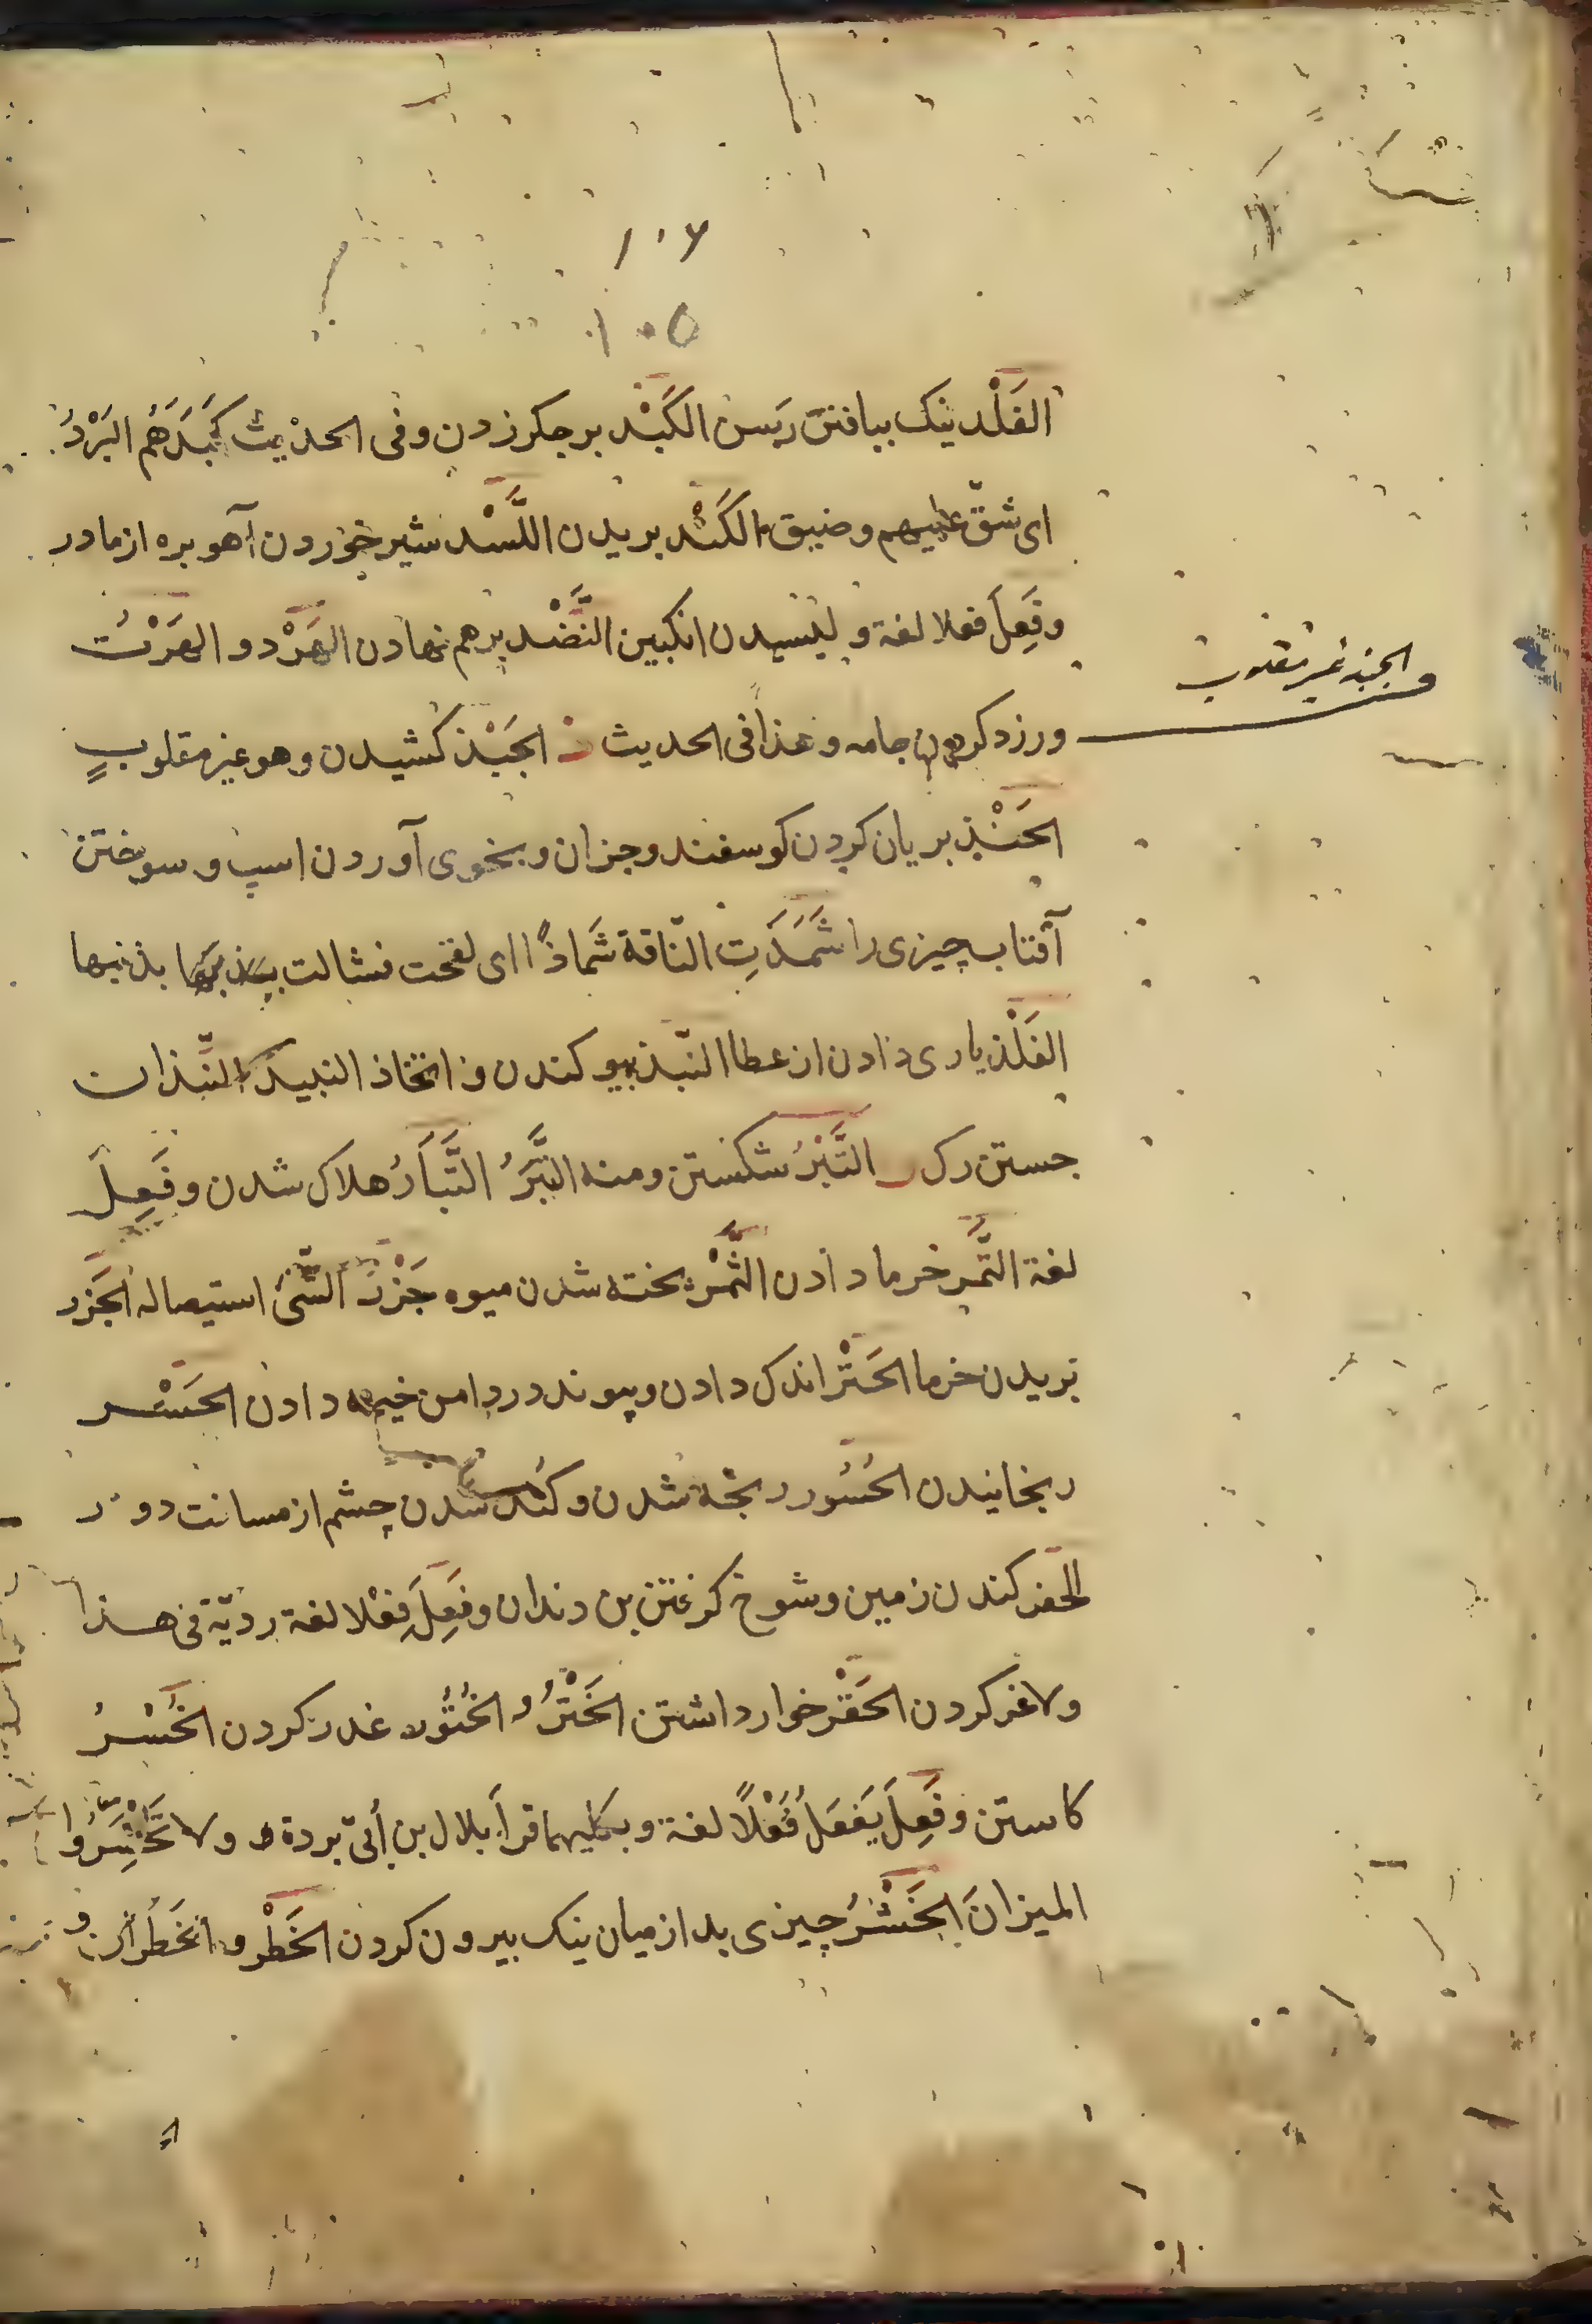 ۱۰۶
۱۰۵
الفَلْد نیک ببافتن رسن الکَبْد بر جکر زدن وفی الحدیث کَبَدَهُم البَرْدُ
ای شقّ علیهم وضیق الکَتْد بریدن اللَّسْد شیر خوردن آهو بره از مادر
وفَعِلَ فعلا لغة و لیسیدن انکبین النَّضْد برهم نهادن الهَرْد و الهَرْت
و رزد کردن جامه وهذا فی الحدیث ذ الجَبْذ کشیدن وهو غیر مقلوبٍ
والجبذ غیر مقلوب
الحَنْذ بریان کردن کوسفند وجزان وبخوی آوردن اسپ و سوختن
آفتاب چیزی را شَمَذَتِ النّاقة شَماذًا ای لقحت فشالت بذنبها
الفَلْذ یاری دادن از عطا النّبذ بیوکندن و اتخاذ النبیذ النَّبذان
جستن رک ر التَّبْرُ شکستن ومنه التِّبْرُ التَّبَارُ هلاک شدن وفَعِلَ
لغة التَّمر خرما دادن الثَّمْر پخته شدن میوه جَزْرُ الشَّیْ استیصاله الجَزر
بریدن خرما الحَتْر اندک دادن وپیوند در دامن خیمه دادن الحَسْر
رنجانیدن الحُسُور رنجه شدن و کند شدن چشم از مسافت دور
الحفر کندن زمین وشوخ کرفتن بن دندان وفَعِلَ فِعْلا لغة ردیّة فی هذا
ولاغر کردن الحَقْر خوار داشتن الخَتْرُ و الخُتُور غدر کردن الخُسْرُ
کاستن وفَعِلَ یَفعَلُ فَعْلًا لغة وبکلیهما قرأ بلال بن أبی بردة ولا تَخْسَِرُوا
المیزانَ الخَشْرُ چیزی بد از میان نیک بیرون کردن الخَطْر و الخَطَران و